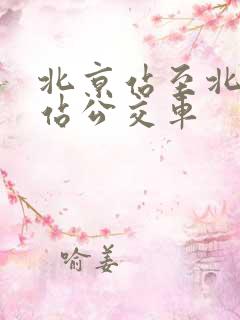 北京佔至北
佔公交車
喻姜